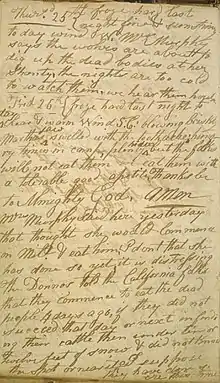 Thursd. 25th froze hard last
night fine & sunshiny
to day wind W. Mrs Murphy
says the wolves are about to
dig up the dead bodies at her
shanty, the nights are too cold
to watch them, we hear them howl
Frid 26th froze hard last night to
day clear & warm Wind S.E. blowing briskly
Marthas jaw swelled with the toothache
times in camp, plenty hides but the folks
will not eat them we eat them with
a tolerable good apetite. Thanks be
to Almighty God. Amen
Mrs Murphy said here yesterday
that thought she would commence
on Milt. & eat him. I dont that she
has done so yet, it is distressing
The Donnos told the California folks
that they commence to eat the dead
people 4 days ago, if they did not
succeed that day or next in find
ing their cattle then under ten or
twelve feet of snow & did not know
the spot or near it, I suppose
they have done